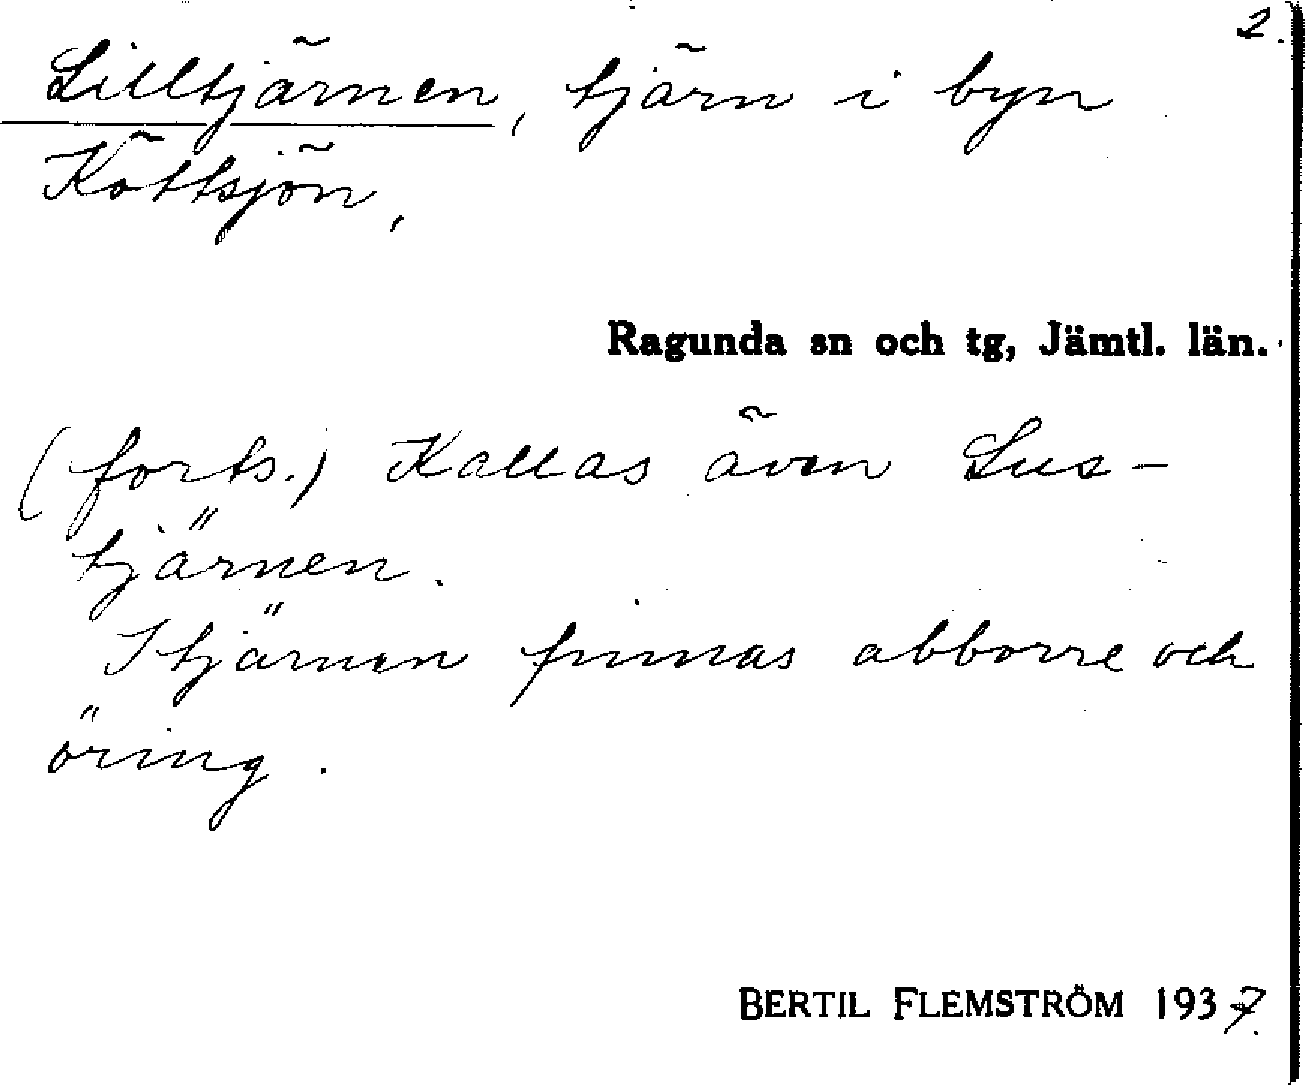 2.
Lilltjärnen, tjärn i byn
Köttsjön,
Ragunda sn och tg, Jämtl. län.
(forts.) Kallas även Lus-
tjärnen.
I tjärnen finnas abborre och
öring.
BERTIL FLEMSTRÖM 1937.